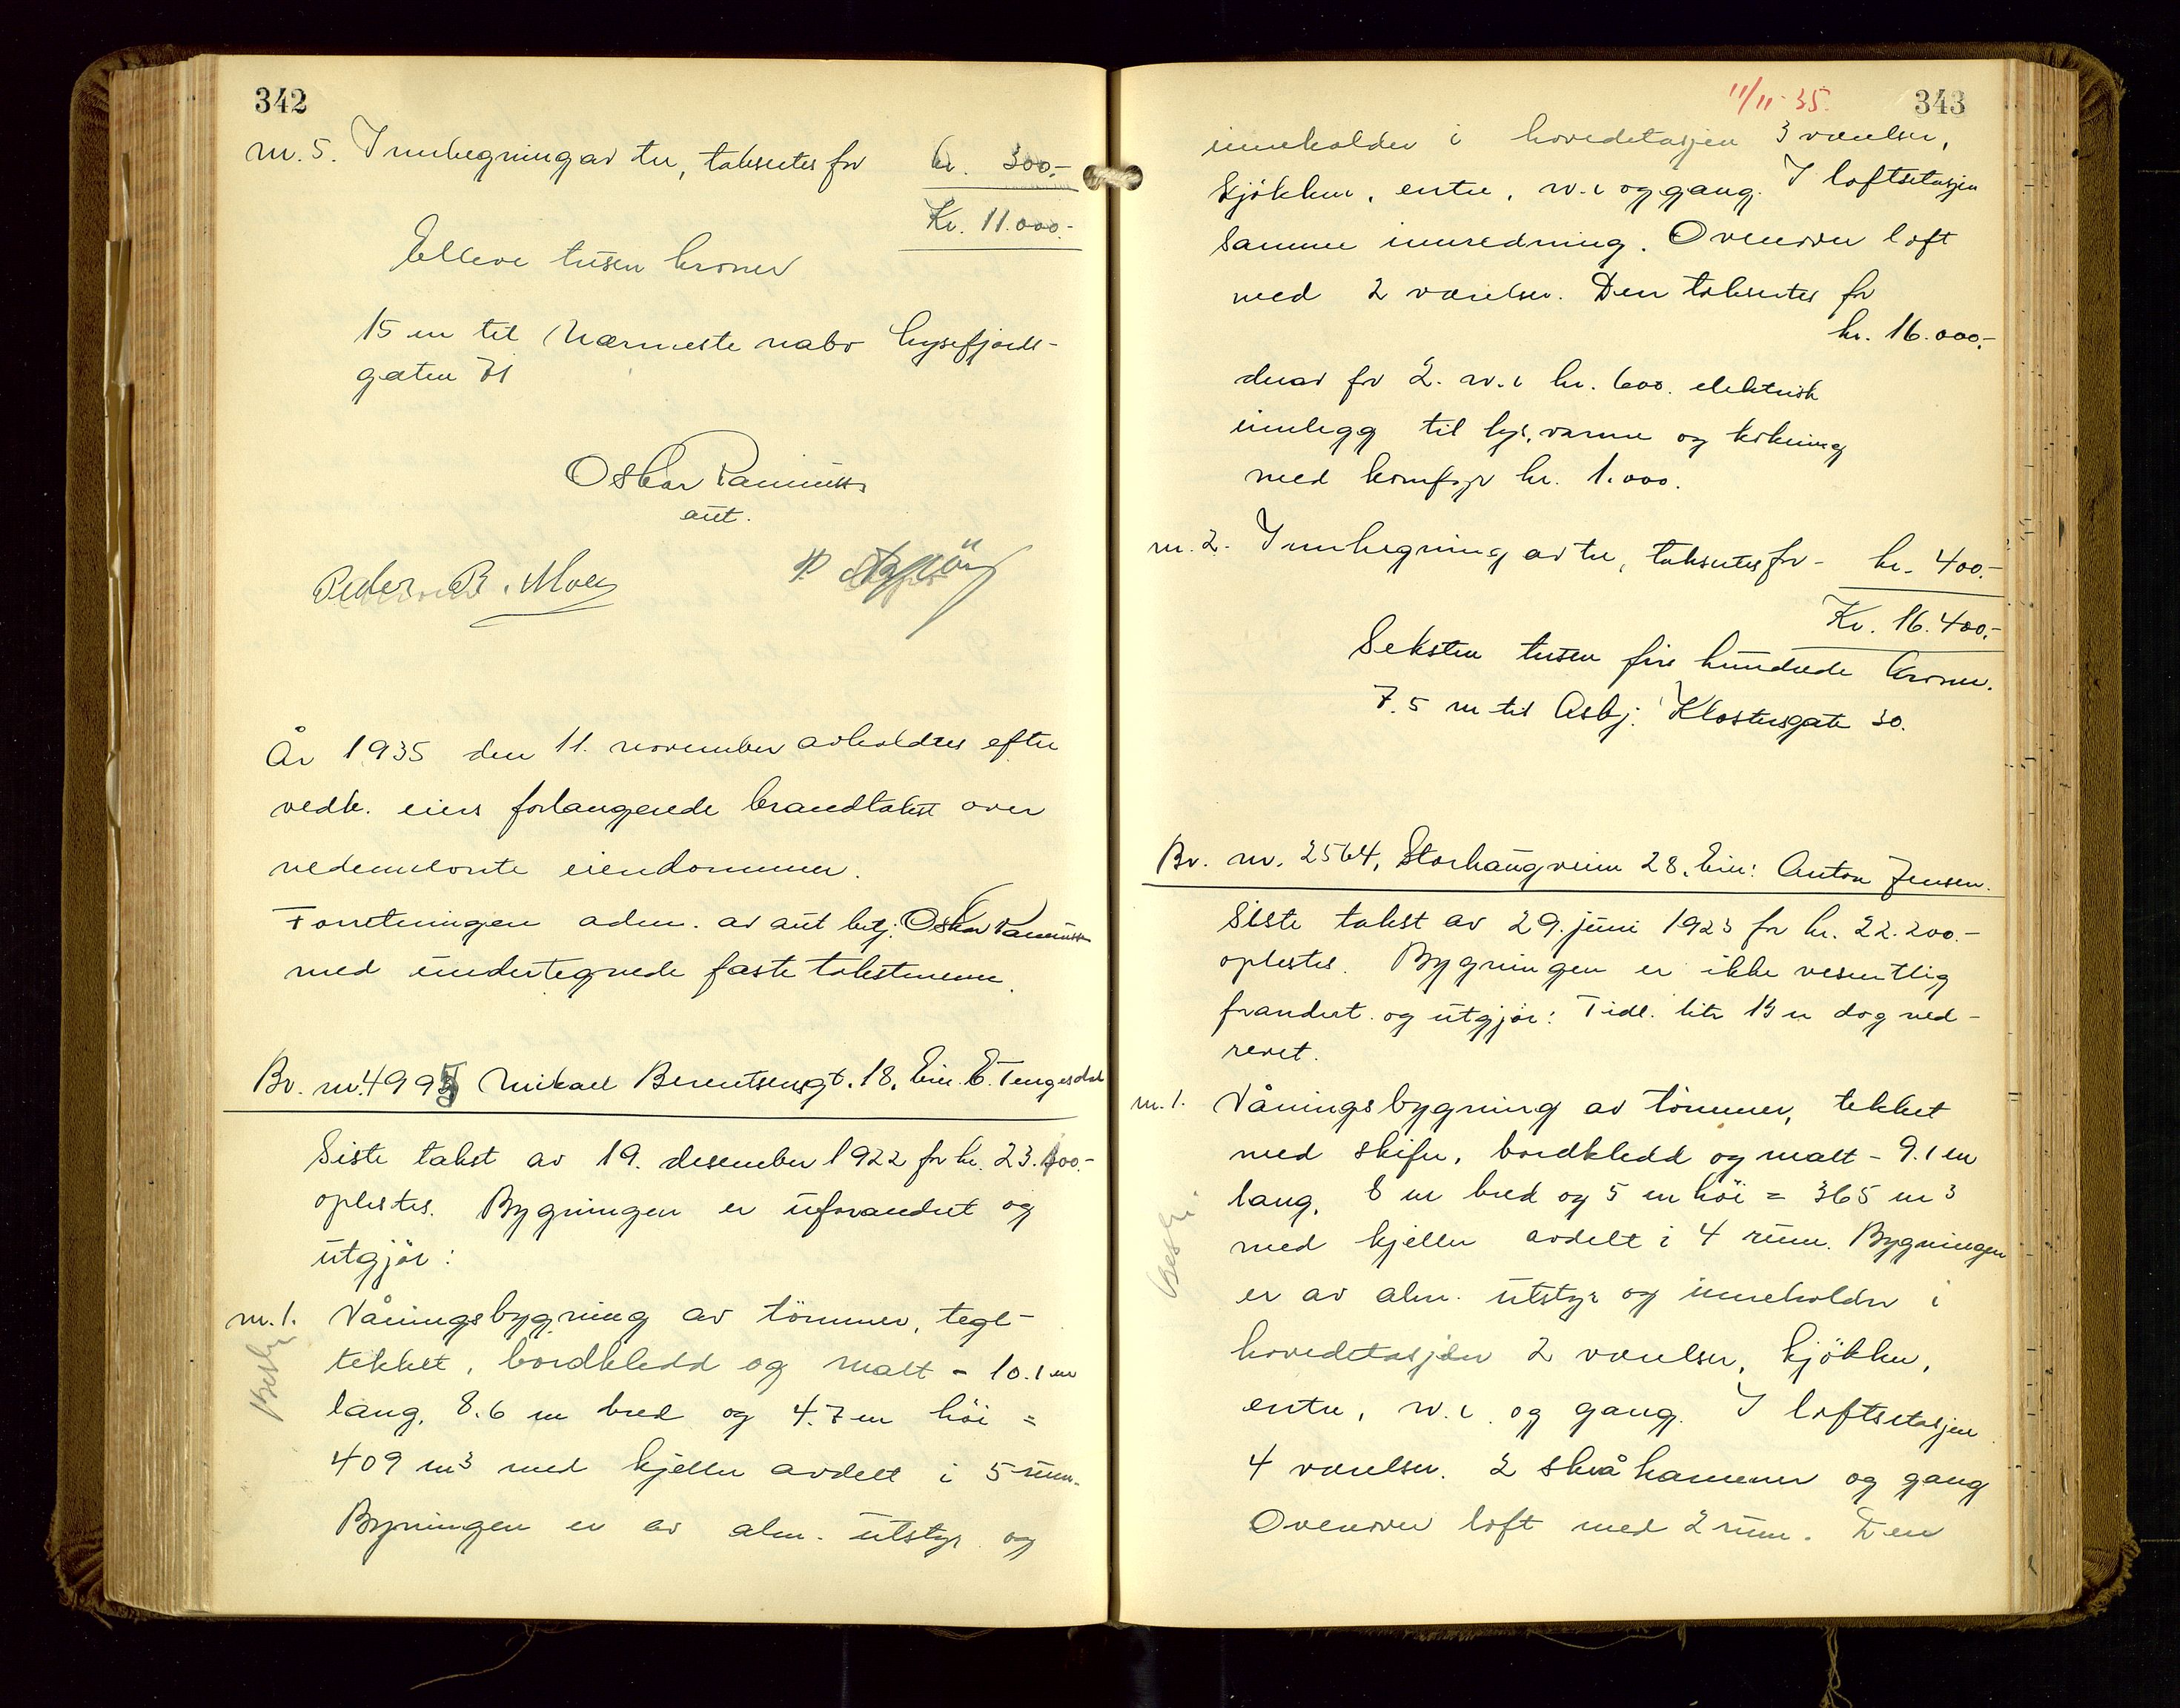 342
nr. 5. Innhegning av tre, takseres for kr. 300.-
Kr. 11.000.-
Elleve tusen kroner
15 m til nærmeste nabo Lysefjords-
gaten 71
Oskar Rasmussen
aut.
Peder B. Moen
År 1935 den 11. november avholdtes efter
vedk. eiers forlangende brandtakst over
nedennevnte eiendommer.
Forretningen adm. av aut betj. Oskar Rasmussen
med undertegnede faste takstmenn.
Br. nr. 4995 Mikael Berentsensgt. 18. Eier: E. Tengesdal
Siste takst av 19. desember 1922 for kr. 23.400.-
oplestes. Bygningen er uforandret og
utgjør:
nr. 1. Våningsbygning av tömmer, tegl-
tekket, bordkledd og malt - 10.1 m
lang, 8.6 m bred og 4.7 m höi =
409 m3 med kjeller avdelt i 5 rum.
Bygningen er av alm. utstyr og
11/11-35. 343
inneholder i hovedetasjen 3 værelser,
kjökken, entre, w.c og gang. I loftsetasjen
samme innredning. Ovenover loft
med 2 værelser. Den takseres for
kr. 16.000.-
derav for 2. w.c kr. 600. elektrisk
innlegg til lys, varme og kokning
med komfyr kr. 1.000.
nr. 2. Innhegning av tre, takseres for - kr. 400.-
Kr. 16.400.-
Seksten tusen fire hundrede kroner.
7.5 m til Asbj. Klostersgate 30.
Br. nr. 2564, Storhaugveien 28. Eier: Anton Jensen.
Siste takst av 29. juni 1923 for kr. 22.200.-
oplestes. Bygningen er ikke vesentlig
forandret og utgjør: Tidl. litr B er dog ned-
revet.
nr. 1. Våningsbygning av tömmer, tekket
med skifer, bordkledd og malt - 9.1 m
lang, 8 m bred og 5 m höi = 365 m3
med kjeller avdelt i 4 rum. Bygningen
er av alm. utstyr og inneholder i
hovedetasjen 2 værelser, kjökken,
entre, w.c. og gang. I loftsetasjen
4 værelser. 2 skråkammer og gang
Ovenover loft med 2 rum. Den